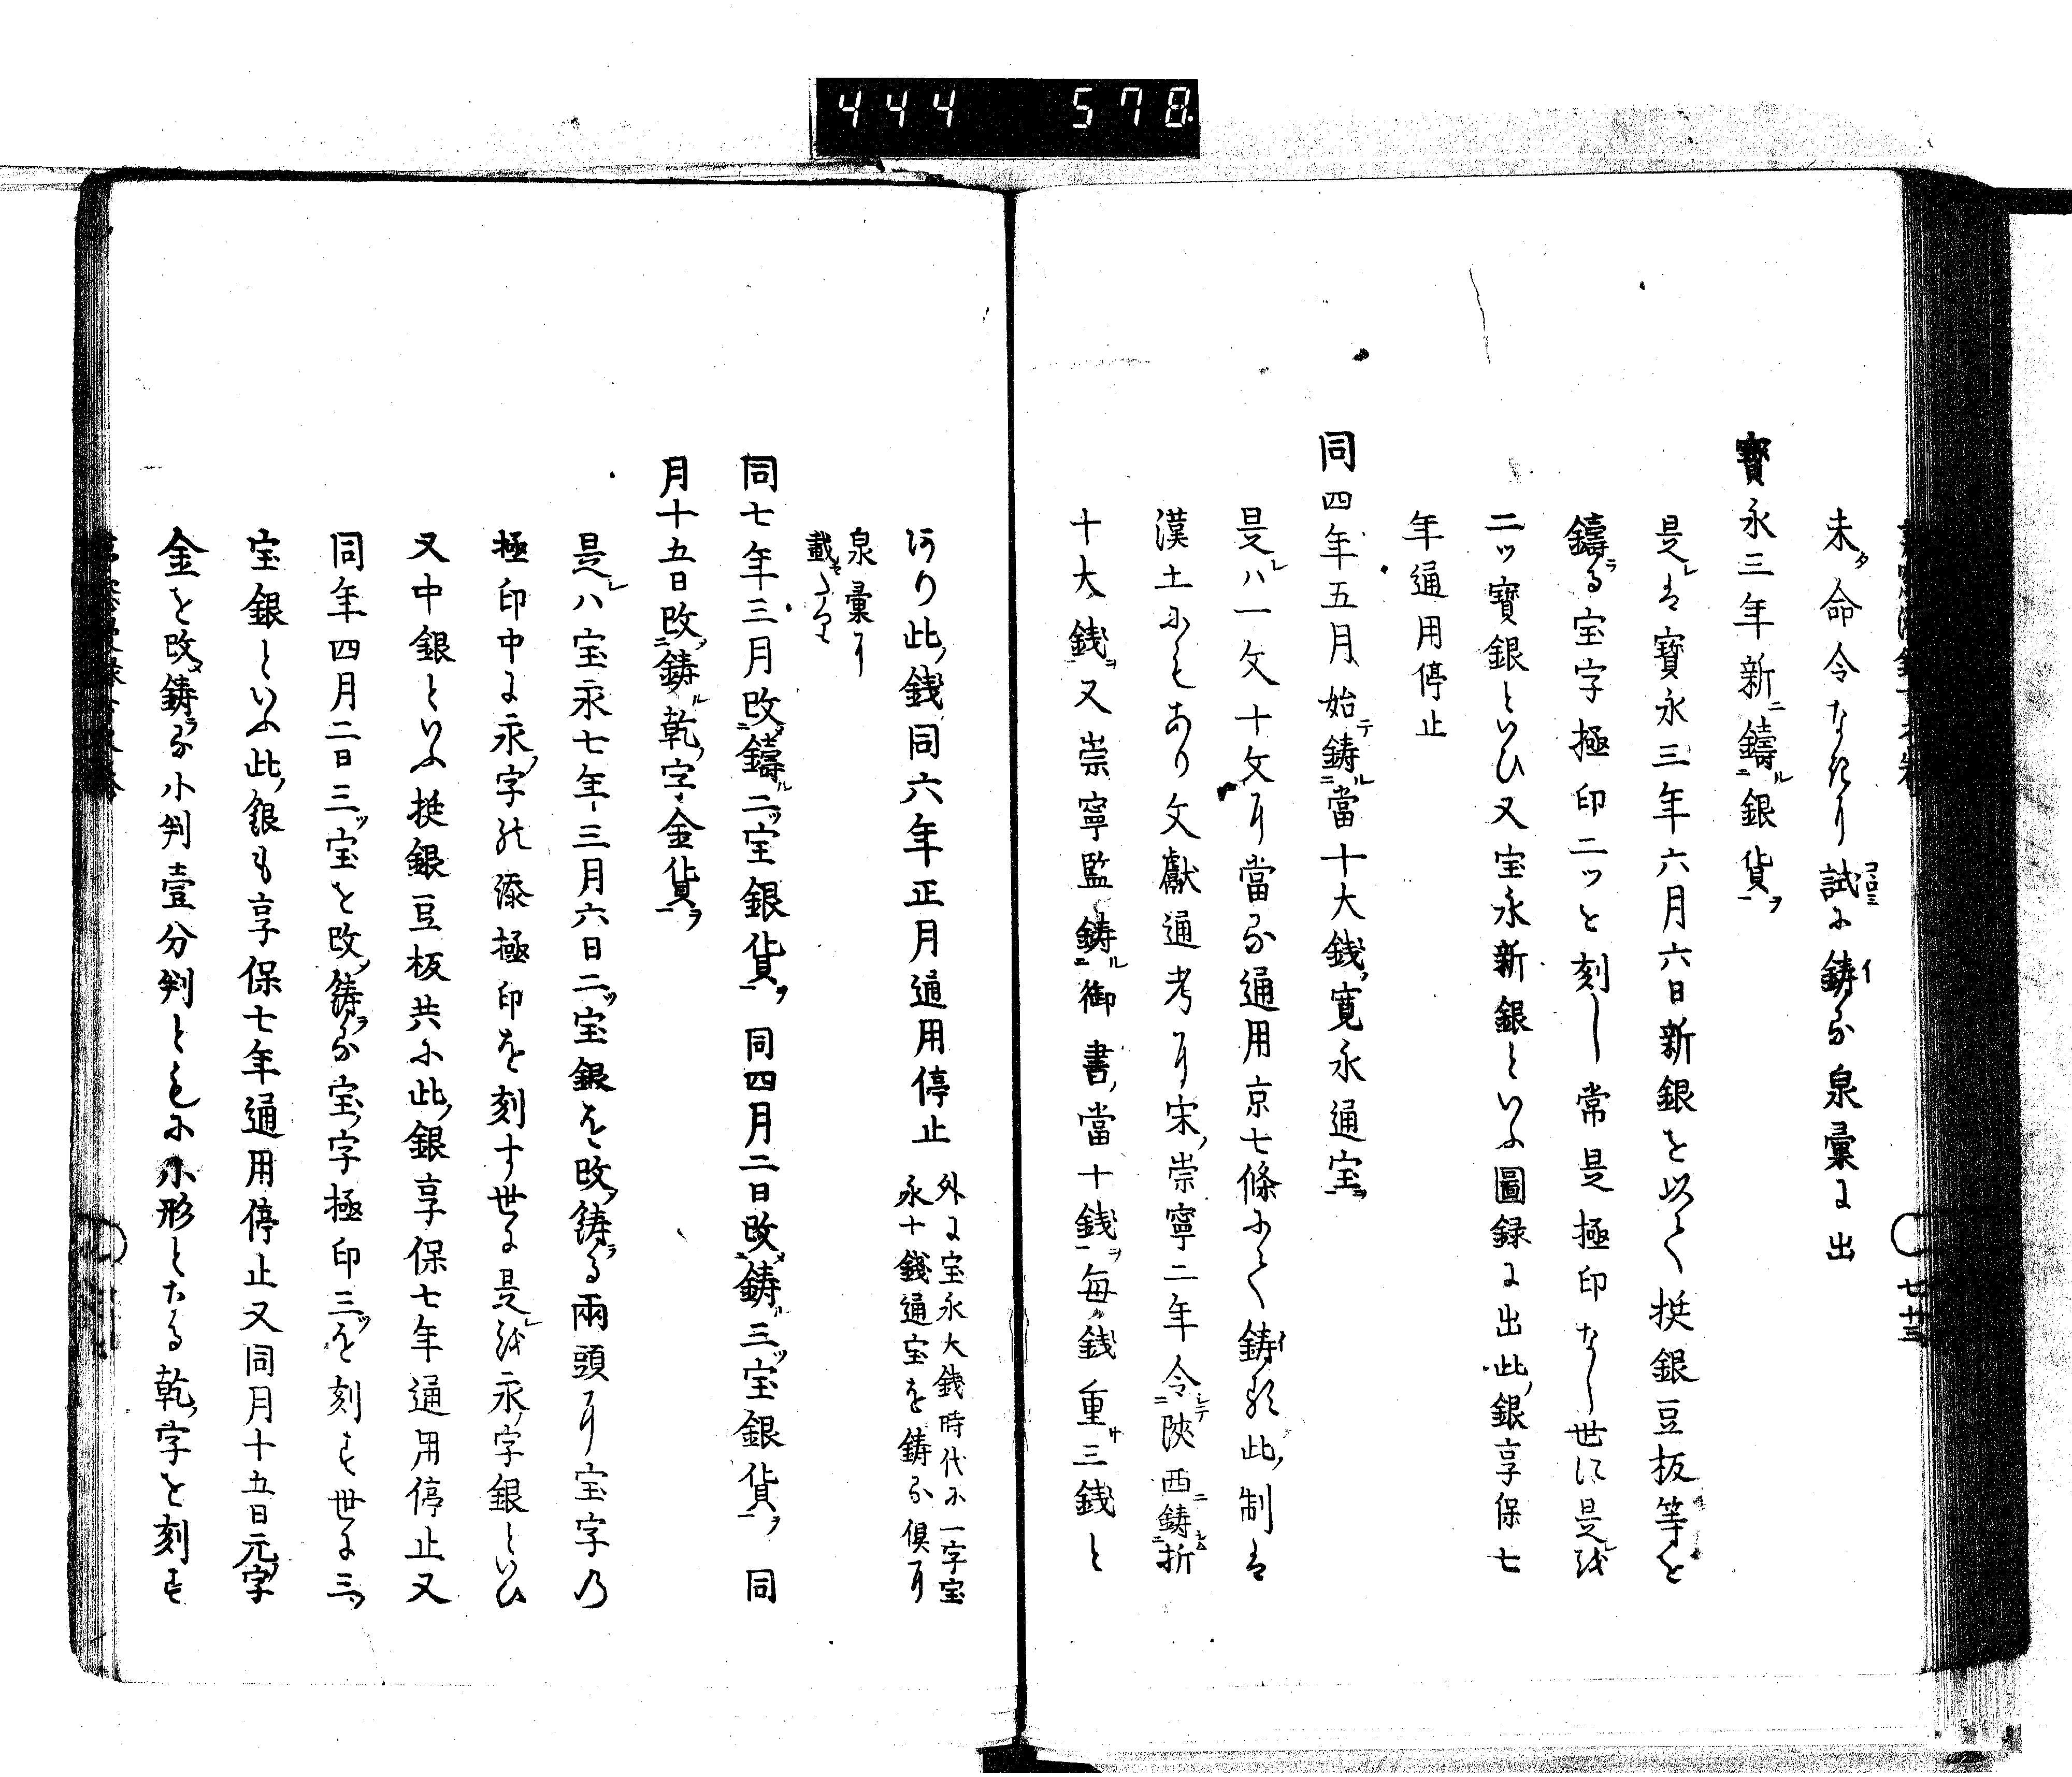 444 578
未タ命令なきにより試コヽロミに鋳イる泉彙に出
寶永三年新ニ鑄ル銀貨ヲ
是レは寶永三年六月六日新銀を以て挺銀豆板等を
鑄ラる宝字極印二ツを刻し常是極印なし世に是レを
二ッ寳銀といひ又宝永新銀といふ圖録に出此ノ銀享保七
年通用停止
同四年五月始テ鋳ル當十大銭ヲ寛永通宝
是レハ一文十文に當る通用京七條にて鋳イる此ノ制は
漢土にもあり文獻通考に宋ノ崇寧二年令シテ陝西ニ鋳シム折
十大銭ヲ又崇寧監鋳ル御書ノ當十銭ヲ毎銭重サ三銭と
あり此ノ銭同六年正月通用停止
外に宝永大銭時代に一字宝
永十錢通宝を鋳る倶に
泉彙に
載す
同七年三月改メ鑄ル二ツ宝銀貨ヲ同四月二日改メ鋳ル三ツ宝銀貨ヲ同
月十五日改メ鋳ル乾ノ字金貨ヲ
是レハ宝永七年三月六日二ツ宝銀を改メ鋳ラる兩頭に宝字乃
極印中に永ノ字の添極印を刻す世に是レを永ノ字銀といひ
又中銀といふ挺銀豆板共に此ノ銀享保七年通用停止又
同年四月二日三ツ宝を改メ鋳ラる宝ノ字極印三ツを刻す世に三ツ
宝銀といふ此ノ銀も享保七年通用停止又同月十五日元ノ字
金を改メ鋳ラる小判壹分判ともに小形となる乾ノ字を刻す